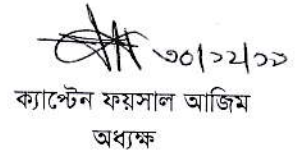 ৩০/১২/১১
ক্যাপ্টেন ফয়সাল আজিম
অধ্যক্ষ